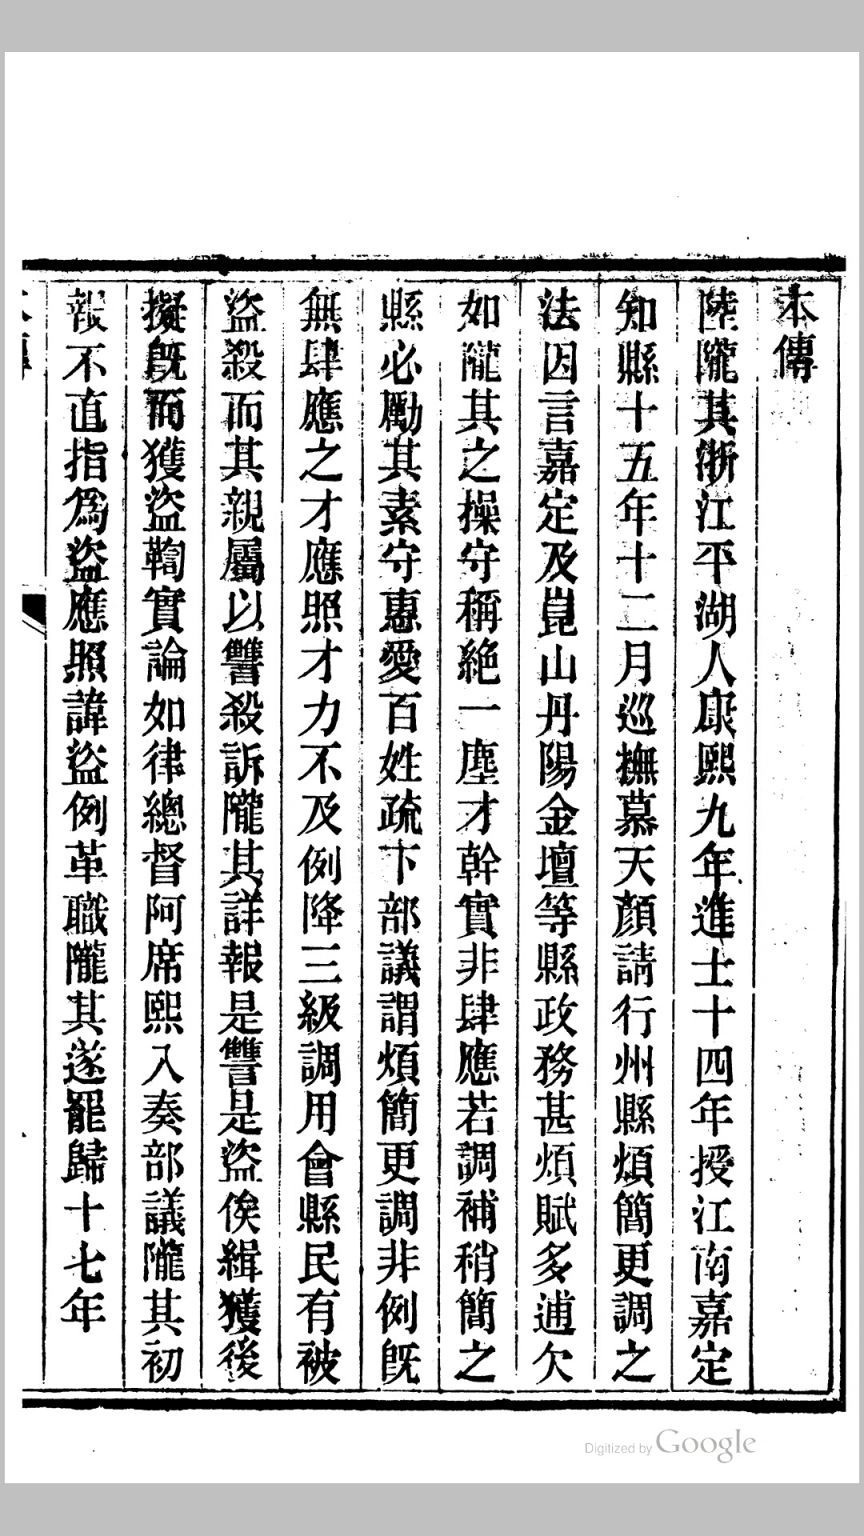 本傳
陸隴其浙江平湖人康熙九年進士十四年授江南嘉定
知縣十五年十二月巡撫慕天顏請行州縣煩簡更調之
法因言嘉定及崑山丹陽金壇等縣政務甚煩賦多逋欠
如隴其之操守稱絕一塵才幹實非肆應若調補稍簡之
縣必勵其素守惠愛百姓疏下部議謂煩簡更調非例既
無肆應之才應照才力不及例降三級調用會縣民有被
盜殺而其親屬以讐殺訴隴其詳報是讐是盜俟緝獲後
擬旣而獲盜鞫實論如律總督阿席熙入奏部議隴其初
報不直指為盜應照諱盜例革職隴其遂罷歸十七年
Digitized by Google